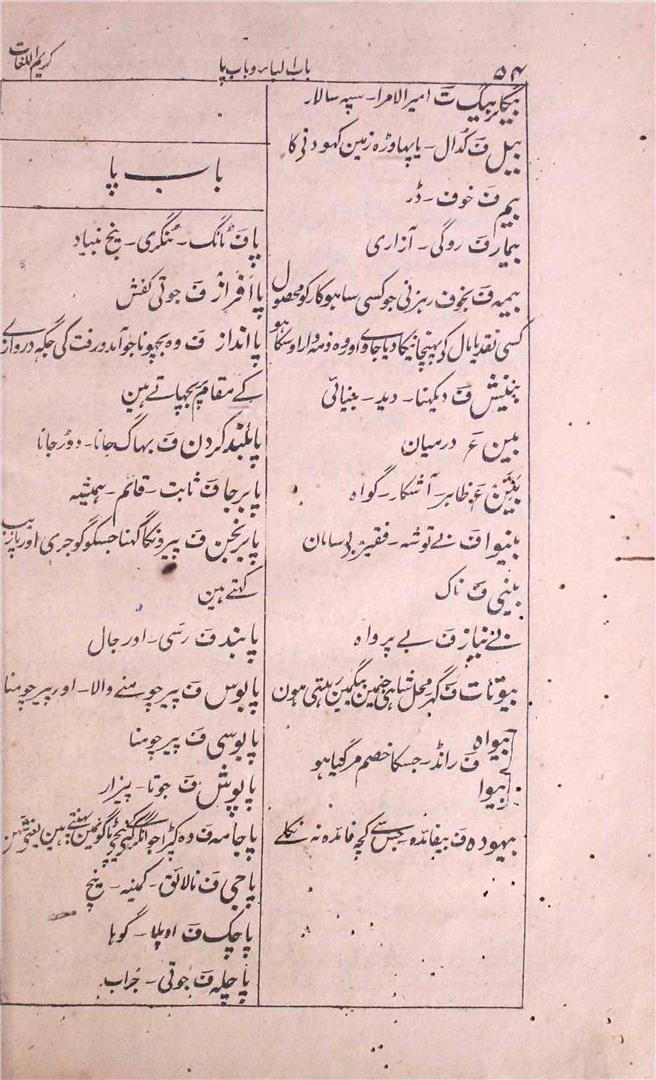 ۵۴
باب البار و باب پا
کریم اللغات
بیگلر بیگ ت امیر الامرا۔ سپہ سالار
بیل ف کدال۔ یا پہاوڑہ زمین کہودنی کا
بیم ف خوف۔ ڈر
بیمار ف روگی۔ آزاری
بیمہ ف بخوف رہزنی جو کسی ساہوکار کو محصول
کسی نقد یا مال کے پہنچانیکا دیا جاوے اور وہ ذمہ دار اوسکا ہو
بینش ف دیکہنا۔ دید۔ بینائی
بین ع درمیان
بیّن ع ظاہر۔ آشکار۔ گواہ
بینوا ف بے توشہ۔ فقیر بی سامان
بینی ف ناک
بے نیاز ف بے پرواہ
بیوتات ف گہر محل شاہی جنمین بیگمین رہتی ہون
بیواہ
بیوا
ف رانڈ۔ جسکا خصم مر گیا ہو
بیہودہ ف بیفائدہ۔ جس سے کچہ فائدہ نہ نکلے
باب پا
پا ف ٹانگ۔ ٹنگری۔ بیخ بنیاد
پا افراز ف جوتی کفش
پا انداز ف وہ بچہونا جو آمد و رفت کی جگہ دروازے
کے مقام پر بچہاتے ہین
پا بلند کردن ف بہاگ جانا۔ دوڑ جانا
پا برجا ف ثابت۔ قائم۔ ہمیشہ
پا برنجن ف پیرونکا گہنا جسکو گوجری اور پازیب
کہتے ہین
پابند ف رسی۔ اور جال
پابوس ف پیر چومنے والا۔ اور پیر چومنا
پابوسی ف پیر چومنا
پاپوش ف جوتا۔ پیزار
پاجامہ ف وہ کپڑا جو ٹانگونمین پہنتے ہین یعنی
پاجی ف نالائق۔ کمینہ۔ نیچ
پاچک ف اوپلا۔ گوہا
پاچلہ ف جوتی۔ جراب۔